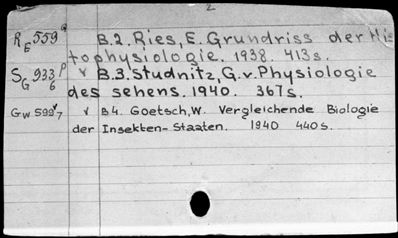 2
R E 559 B.2. Ries, E. Grundriss der His
tophysiologie. 1938. 413 s.
S G 933 P 6 v B.3. Studnitz, G. v. Physiologie
des sehens. 1940. 367 s.
G w 599 7 v B4. Goetsch, W. Vergleichende Biologie
der Insekten-Staaten. 1940 440 s.